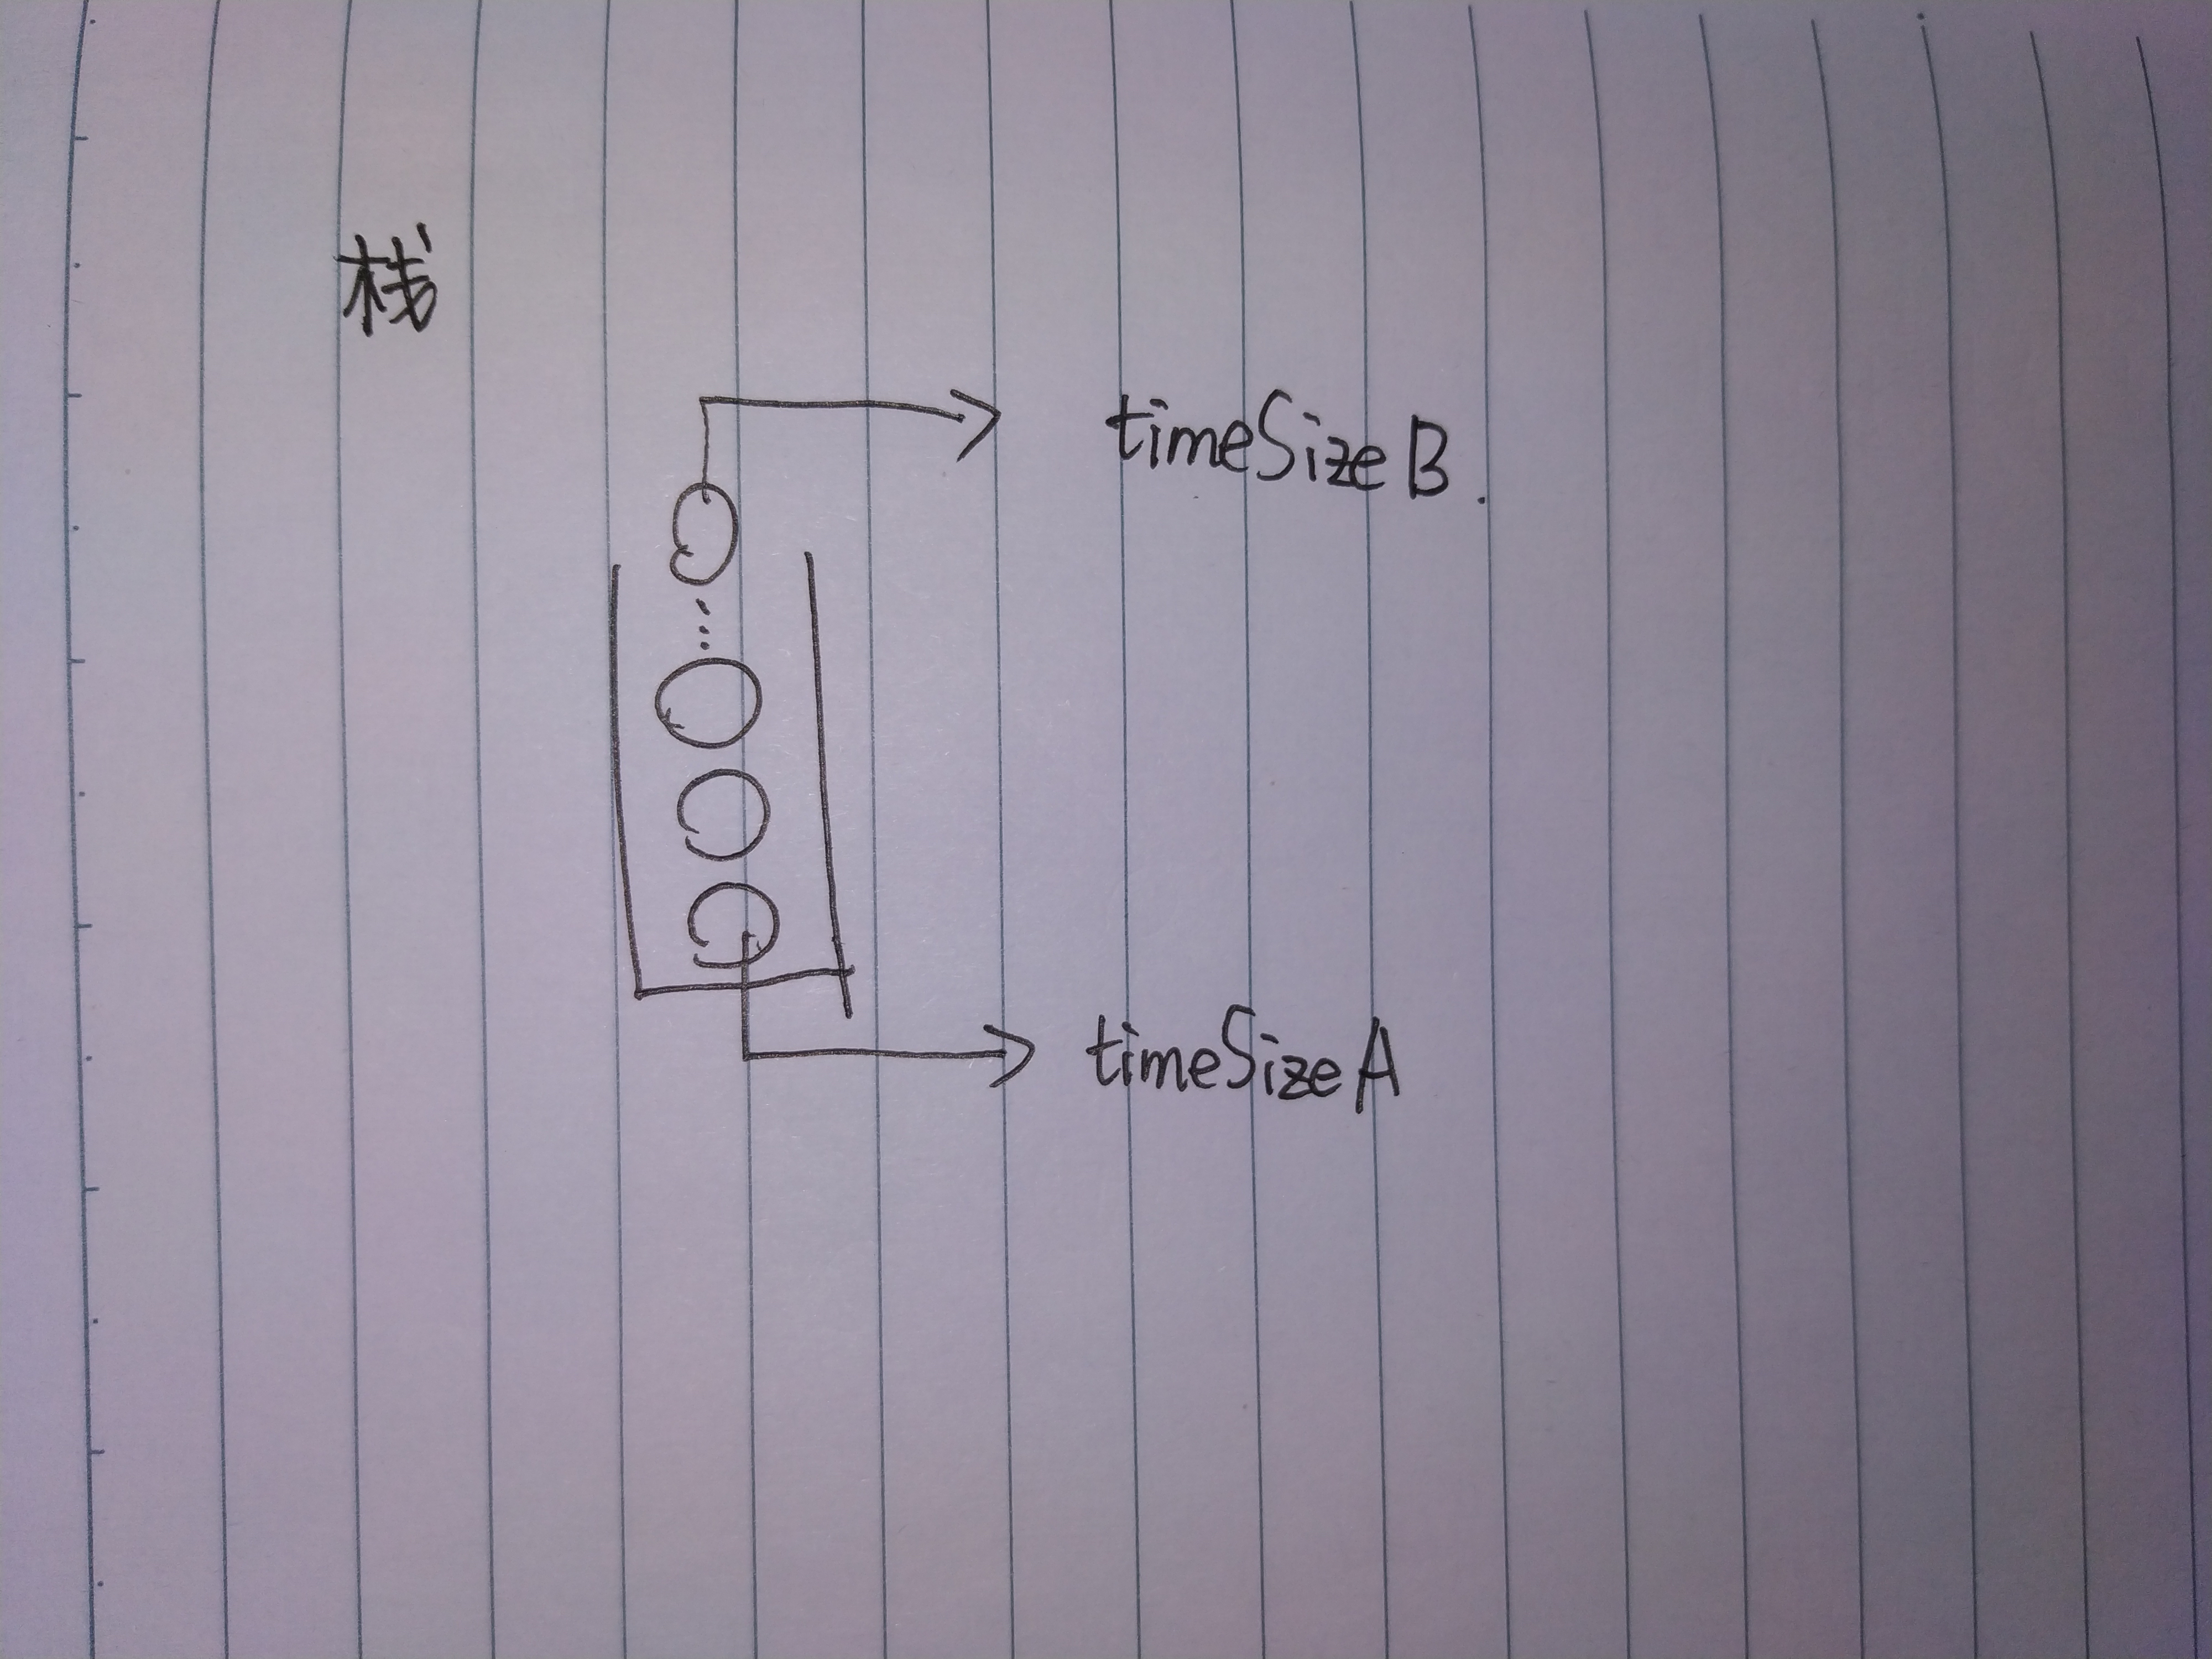 栈
timeSizeB.
timeSizeA